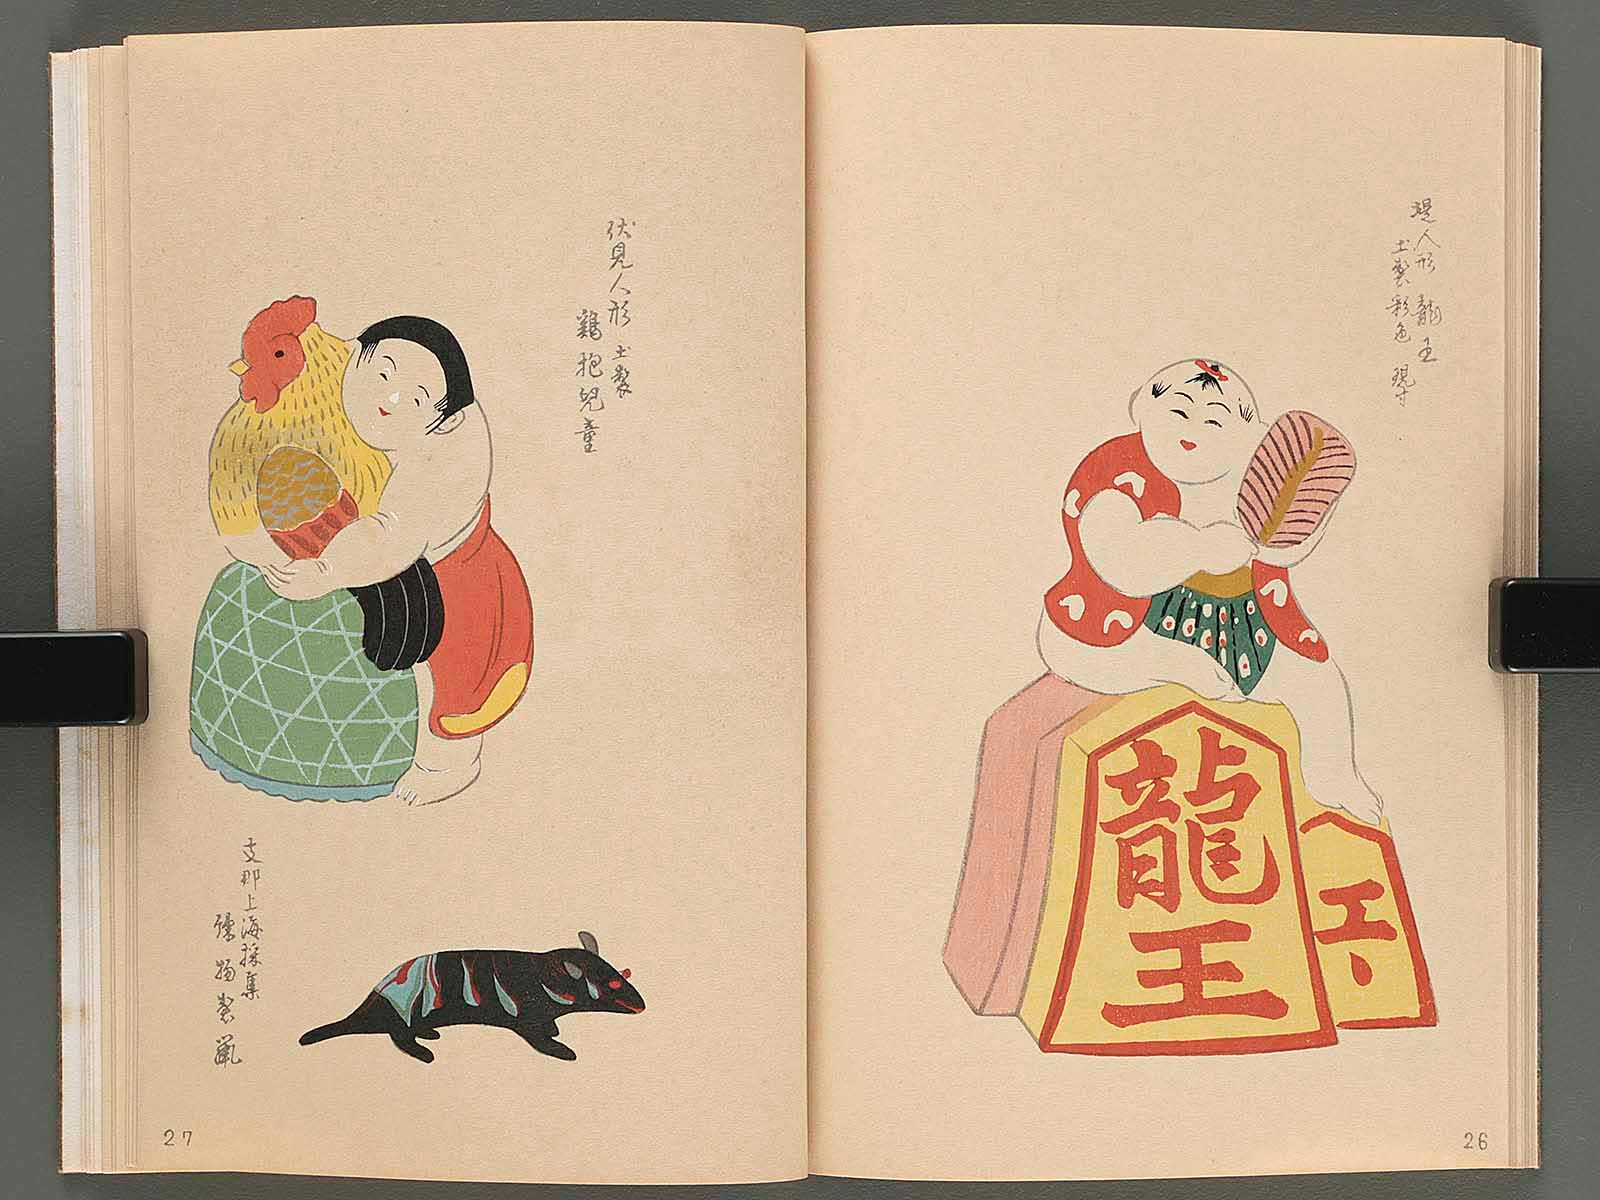 堤人形 龍王
土製彩色 現寸
龍王
26
伏見人形 土製
鶏抱児童
支那上海採集
27